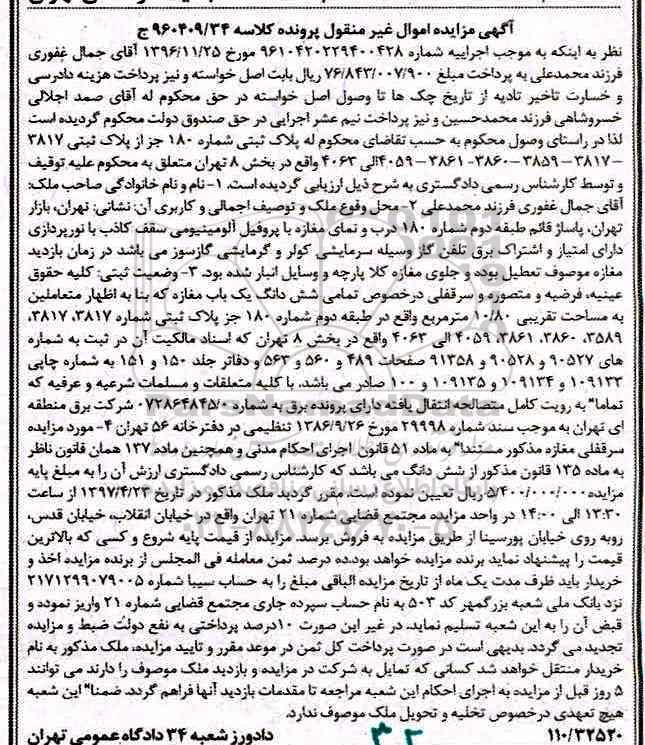 آگهی مزایده اموال غیر منقول پرونده کلاسه ۹۶۰۴۰۹/۳۴ ج
نظر به اینکه به موجب اجراییه شماره ۹۶۱۰۴۲۰۲۲۹۴۰۰۴۲۸ مورخ ۱۳۹۶/۱۱/۲۵ آقای جمال غفوری
فرزند محمدعلی به پرداخت مبلغ ۷۶/۸۴۳/۰۰۷/۹۰۰ ریال بابت اصل خواسته و نیز پرداخت هزینه دادرسی
و خسارت تاخیر تادیه از تاریخ چک ها تا وصول اصل خواسته در حق محکوم له آقای صمد اجلالی
خسروشاهی فرزند محمدحسین و نیز پرداخت نیم عشر اجرایی در حق صندوق دولت محکوم گردیده است
لذا در راستای وصول محکوم به حسب تقاضای محکوم له پلاک ثبتی شماره ۱۸۰ جز از پلاک ثبتی ۳۸۱۷
–۳۸۱۷–۳۸۵۹–۳۸۶۰– ۳۸۶۱–۴۰۵۹الی ۴۰۶۳ واقع در بخش ۸ تهران متعلق به محکوم علیه توقیف
و توسط کارشناس رسمی دادگستری به شرح ذیل ارزیابی گردیده است. ۱-نام و نام خانوادگی صاحب ملک:
آقای جمال غفوری فرزند محمدعلی ۲-محل وقوع ملک و توصیف اجمالی و کاربری آن: نشانی: تهران، بازار
تهران، پاساژ قائم طبقه دوم شماره ۱۸۰ درب و نمای مغازه با پروفیل آلومینیومی سقف کاذب با نورپردازی
دارای امتیاز و اشتراک برق تلفن گاز وسیله سرمایشی کولر و گرمایشی گازسوز می باشد در زمان بازدید
مغازه موصوف تعطیل بوده و جلوی مغازه کلا پارچه و وسایل انبار شده بود. ۳-وضعیت ثبتی: کلیه حقوق
عینیه، فرضیه و متصوره و سرقفلی درخصوص تمامی شش دانگ یک باب مغازه که بنا به اظهار متعاملین
به مساحت تقریبی ۱۰/۸۰ مترمربع واقع در طبقه دوم شماره ۱۸۰ جز پلاک ثبتی شماره ۳۸۱۷، ۳۸۱۷،
۳۵۸۹، ۳۸۶۰، ۳۸۶۱، ۴۰۵۹ الی ۴۰۶۳ واقع در بخش ۸ تهران که اسناد مالکیت آن در ثبت به شماره
های ۹۰۵۲۷ و ۹۰۵۲۸ و ۹۱۳۵۸ صفحات ۴۸۹ و ۵۶۰ و ۵۶۳ و دفاتر جلد ۱۵۰ و ۱۵۱ به شماره چاپی
۱۰۹۱۳۳ و ۱۰۹۱۳۴ و ۱۰۹۱۳۵ و ۱۰۰ صادر می باشد. با کلیه متعلقات و مسلمات شرعیه و عرفیه که
تماما" به رویت کامل متصالحه انتقال یافته دارای پرونده برق به شماره ۰۷۲۸۶۴۸۴۵/۰ شرکت برق منطقه
ای تهران به موجب سند شماره ۲۹۹۹۸ مورخ ۱۳۸۶/۹/۲۶ تنظیمی در دفترخانه ۵۶ تهران ۴- مورد مزایده
سرقفلی مغازه مذکور مستندا" به ماده ۵۱ قانون اجرای احکام مدنی و همچنین ماده ۱۳۷ همان قانون ناظر
به ماده ۱۳۵ قانون مذکور از شش دانگ می باشد که کارشناس رسمی دادگستری ارزش آن را به مبلغ پایه
مزایده ۵/۴۰۰/۰۰۰/۰۰۰ریال تعیین نموده است. مقرر گردید ملک مذکور در تاریخ ۱۳۹۷/۴/۲۳ از ساعت
۱۳:۳۰ الی ۱۴:۰۰ در واحد مزایده مجتمع قضایی شماره ۲۱ تهران واقع در خیابان انقلاب، خیابان قدس،
روبه روی خیابان پورسینا از طریق مزایده به فروش برسد. مزایده از قیمت پایه شروع و کسی که بالاترین
قیمت را پیشنهاد نماید برنده مزایده خواهد بود.ده درصد ثمن معامله فی المجلس از برنده مزایده اخذ و
خریدار باید ظرف مدت یک ماه از تاریخ مزایده الباقی مبلغ را به حساب سیبا شماره ۲۱۷۱۲۹۹۰۷۹۰۰۵
نزد بانک ملی شعبه بزرگمهر کد ۵۰۳ به نام حساب سپرده جاری مجتمع قضایی شماره ۲۱ واریز نموده و
قبض آن را به این شعبه تسلیم نماید. در غیر این صورت ۱۰درصد پرداختی به نفع دولت ضبط و مزایده
تجدید می گردد. بدیهی است در صورت پرداخت کل ثمن در موعد مقرر و تایید مزایده، ملک مذکور به نام
خریدار منتقل خواهد شد کسانی که تمایل به شرکت در مزایده و بازدید ملک موصوف را دارند می توانند
۵ روز قبل از مزایده به اجرای احکام این شعبه مراجعه تا مقدمات بازدید آنها فراهم گردد. ضمنا" این شعبه
هیچ تعهدی درخصوص تخلیه و تحویل ملک موصوف ندارد.
۱۱۰/۳۲۵۲۰ دادورز شعبه ۳۴ دادگاه عمومی تهران